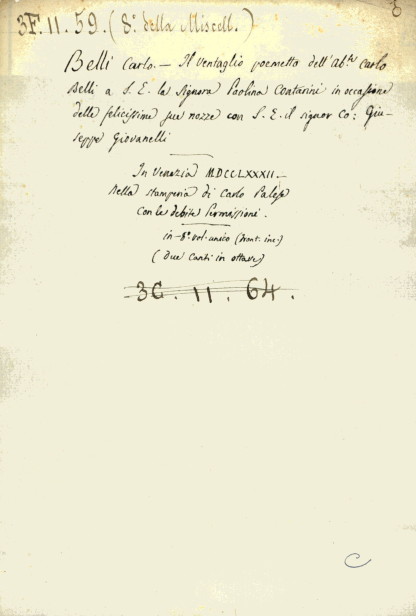 8
3F. 11. 59. (8.° della Miscell.)
Belli Carlo. – Il Ventaglio poemetto dell'ab.te Carlo
Belli a S. E. la Signora Paolina Contarini in occasione
delle felicissime sue nozze con S. E. il signor Co: Giu-
seppe Giovanelli
In Venezia MDCCLXXXII. –
Nella stamperia di Carlo Palese
con le debite Permissioni.
in–8.° vol. unico (front. inc.)
(due Canti in ottave)
3C. 11. 64.
C